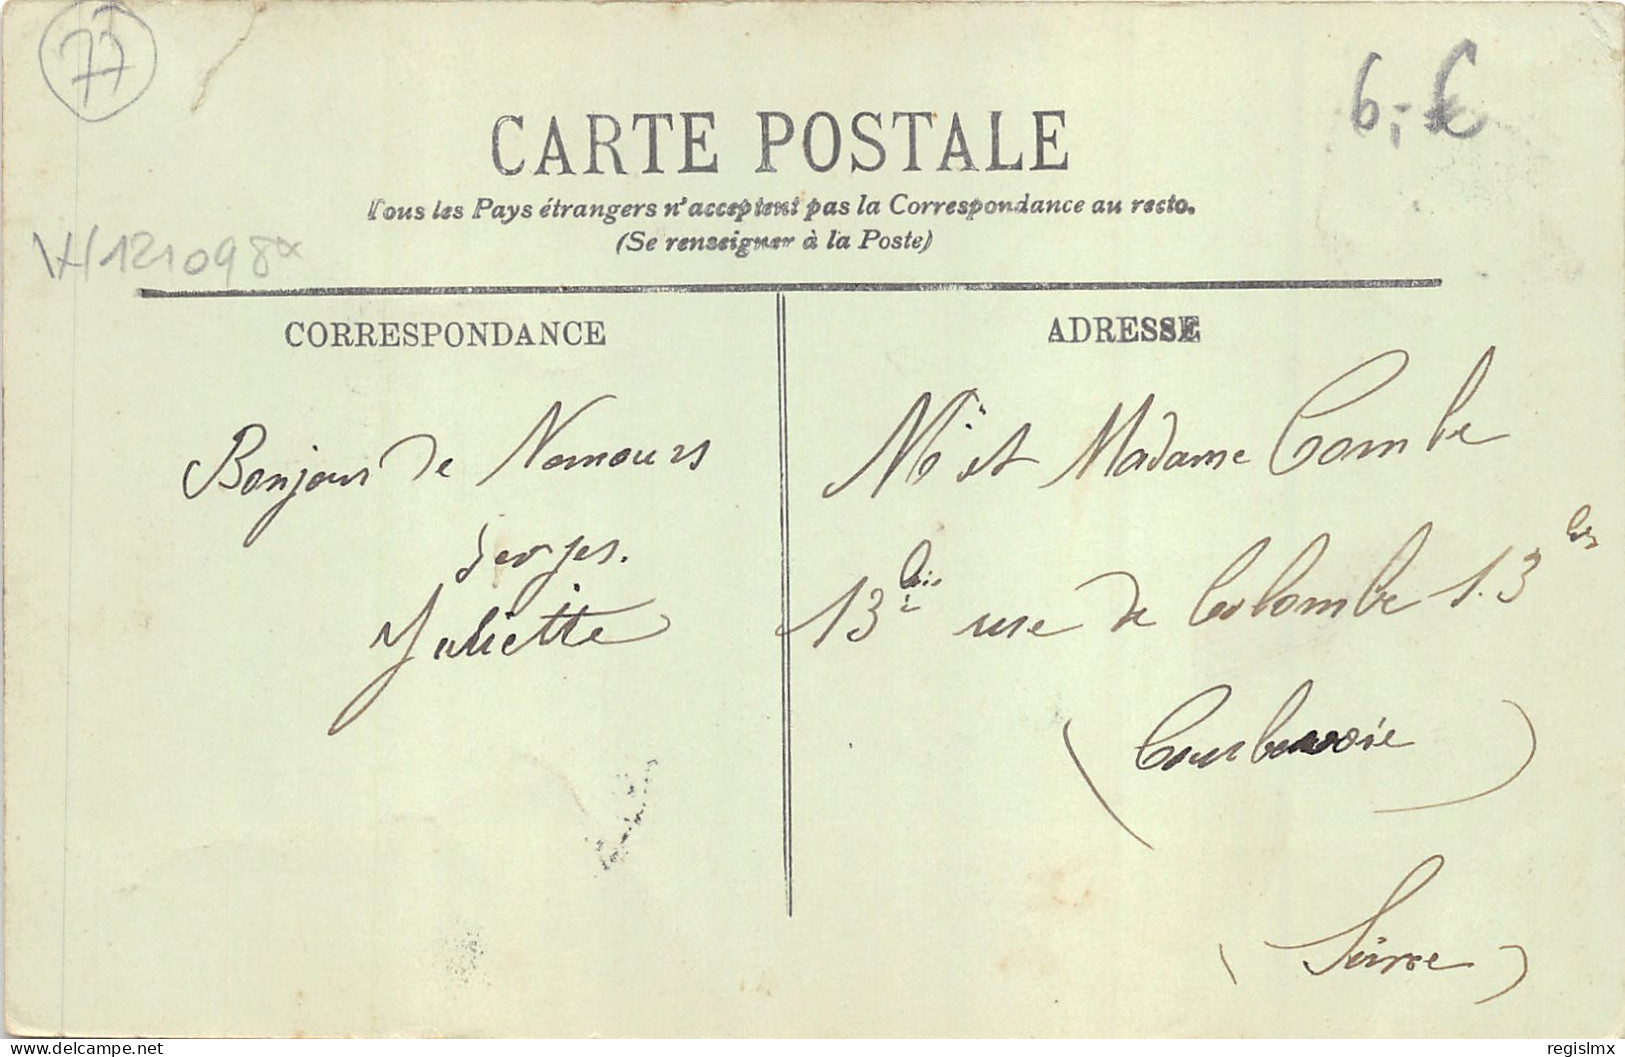 77
6,-€
CARTE POSTALE
Tous les Pays étrangers n'acceptent pas la Correspondance au recto.
(Se renseigner à la Poste)
VH121098
CORRESPONDANCE
Bonjour de Nemours
Serges.
Juliette
ADRESSE
Mr et Madame Combe
13 bis rue de Colombe 13 bis
(Courbevoie)
(Seine)
www.delcampe.net
regislmx